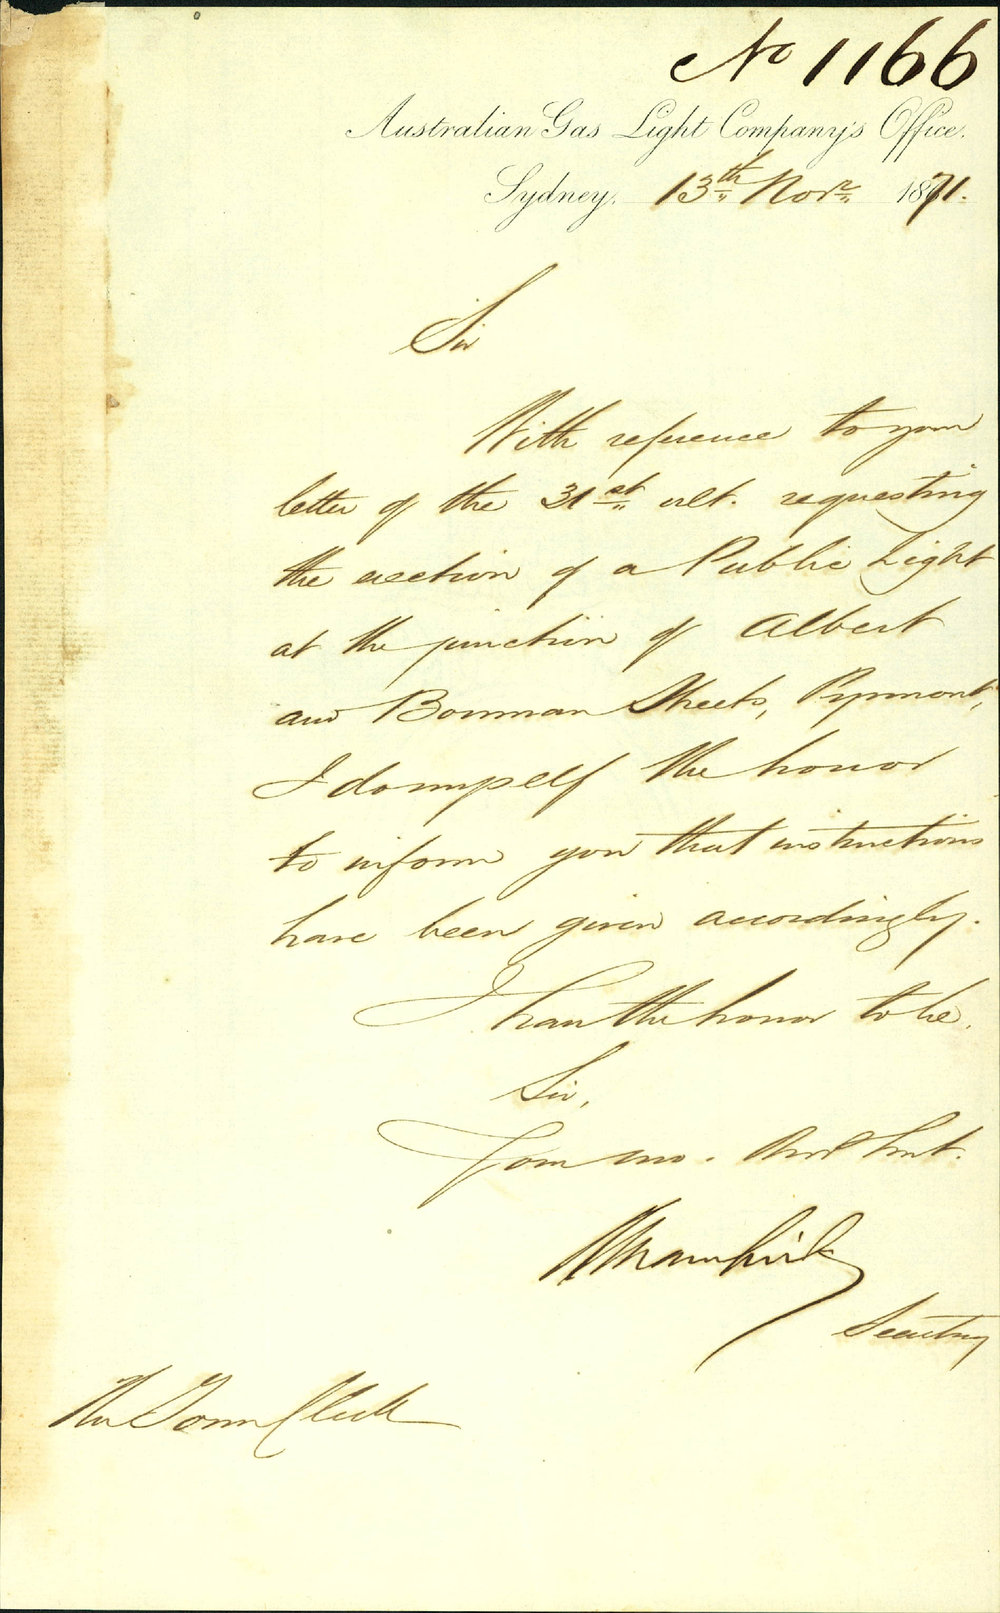 No 1166
Australian Gas Light Company's Office.
Sydney, 13th Novr 1871.
Sir
With reference to your
letter of the 31st ult. requesting
the erection of a Public Light
at the junction of Albert
and Bowman Streets, Pyrmont,
I do myself the honor
to inform you that instructions
have been given accordingly.
I have the honor to be,
Sir,
Your mo. Obt Servt.
Secretary
The Town Clerk